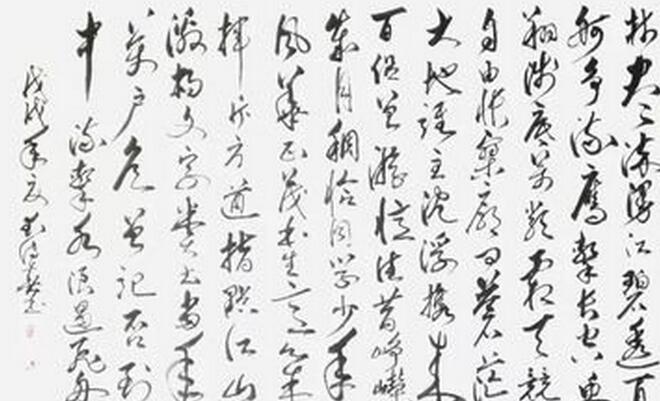 林尽染漫江碧透百
舸争流鷹擊长空鱼
翔浅底萬类霜天競
自由悵寥廓问蒼茫
大地谁主沉浮携来
百侣曾游憶往昔峥嶸
歲月稠恰同学少年
风华正茂书生意气
挥斥方遒指點江山
激扬文字粪土当年
萬户侯曾记否到
中流擊水浪遏飛舟
戊戌年夏